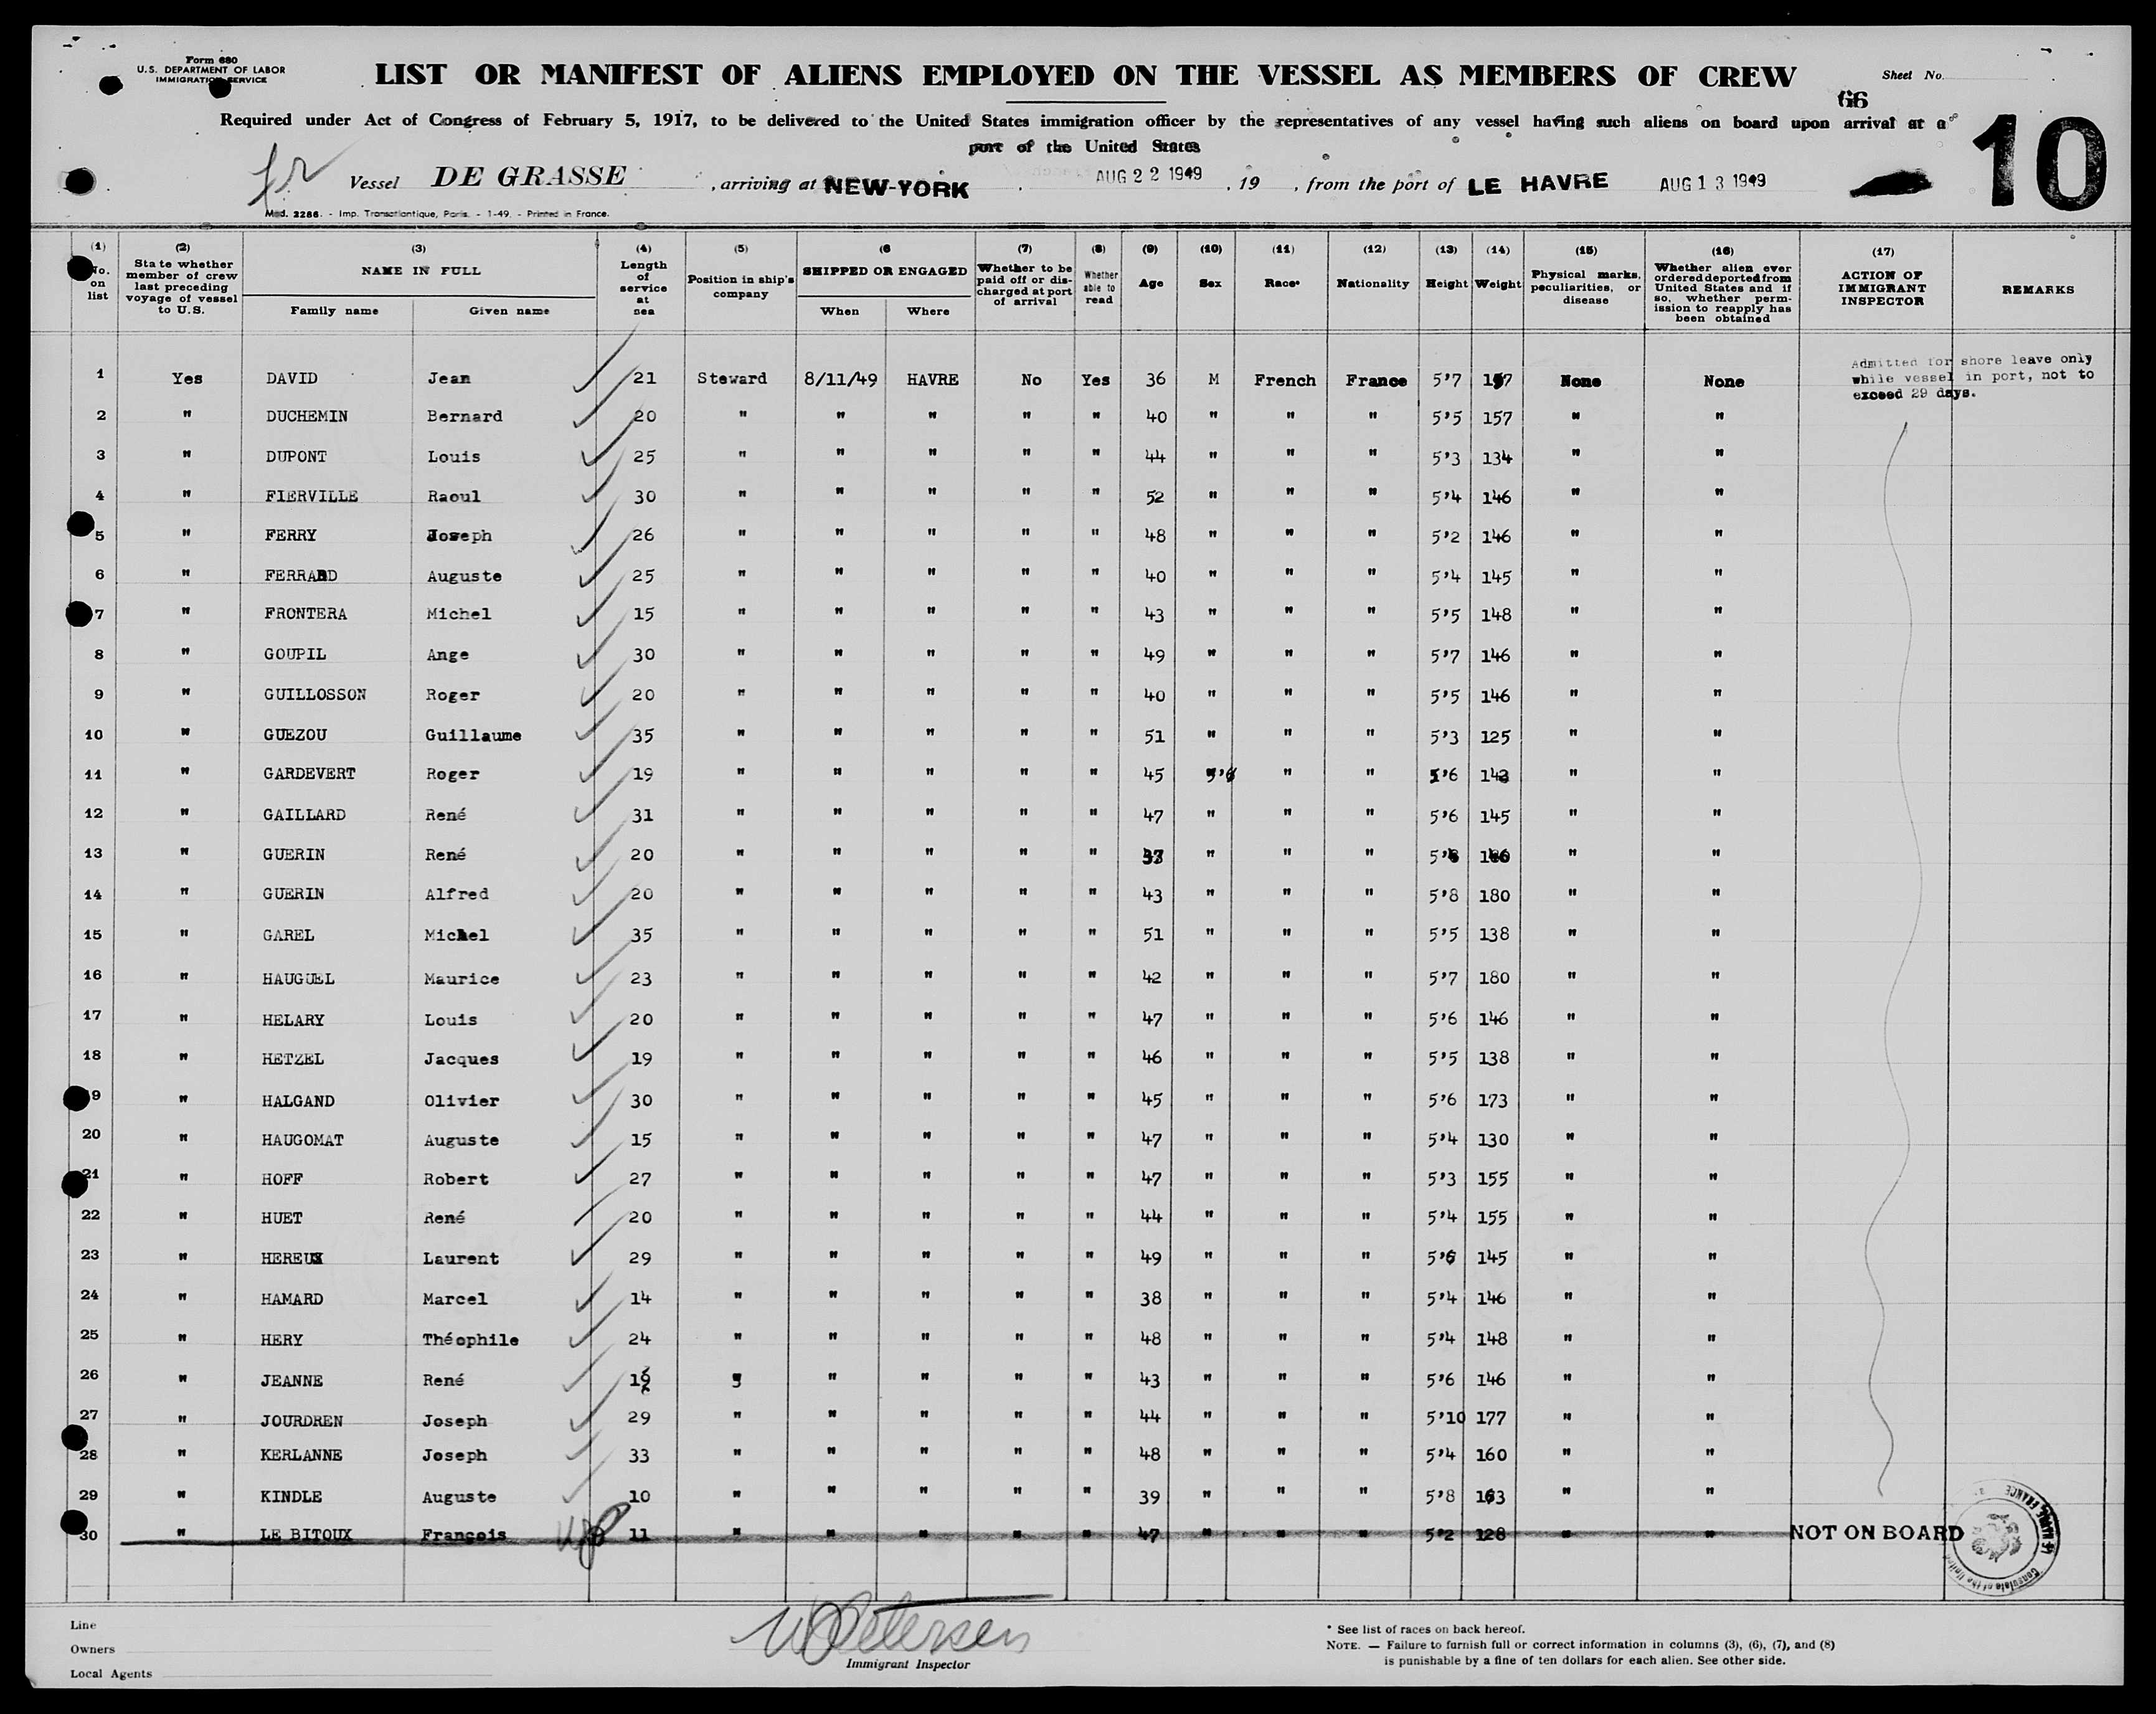 Form 680
U.S. DEPARTMENT OF LABOR
IMMIGRATION SERVICE
LIST OR MANIFEST OF ALIENS EMPLOYED ON THE VESSEL AS MEMBERS OF CREW
Sheet No.
66
10
Required under Act of Congress of February 5, 1917, to be delivered to the United States immigration officer by the representatives of any vessel having such aliens on board upon arrival at a
port of the United States
Vessel DE GRASSE , arriving at NEW-YORK AUG 22 1949 , 19 , from the port of LE HAVRE AUG 13 1949
Mod. 2286. - Imp. Transatlantique, Paris. - 1-49. - Printed in France.
(1) No. on list
(2) State whether member of crew last preceding voyage of vessel to U.S.
(3) NAME IN FULL Family name Given name
(4) Length of service at sea
(5) Position in ship's company
(6 SHIPPED OR ENGAGED When Where
(7) Whether to be paid off or discharged at port of arrival
(8) Whether able to read
(9) Age
(10) Sex
(11) Race*
(12) Nationality
(13) Height
(14) Weight
(15) Physical marks, peculiarities, or disease
(16) Whether alien ever ordered deported from United States and if so, whether permission to reapply has been obtained
(17) ACTION OF IMMIGRANT INSPECTOR
REMARKS
Admitted for shore leave only
while vessel in port, not to
exceed 29 days.
1 Yes DAVID Jean 21 Steward 8/11/49 HAVRE No Yes 36 M French France 5'7 None None
2 " DUCHEMIN Bernard 20 " " " " " 40 " " " 5'5 157 " "
3 " DUPONT Louis 25 " " " " " 44 " " " 5'3 134 " "
4 " FIERVILLE Raoul 30 " " " " " 52 " " " 5'4 146 " "
5 " FERRY Joseph 26 " " " " " 48 " " " 5'2 146 " "
6 " FERRARD Auguste 25 " " " " " 40 " " " 5'4 145 " "
7 " FRONTERA Michel 15 " " " " " 43 " " " 5'5 148 " "
8 " GOUPIL Ange 30 " " " " " 49 " " " 5'7 146 " "
9 " GUILLOSSON Roger 20 " " " " " 40 " " " 5'5 146 " "
10 " GUEZOU Guillaume 35 " " " " " 51 " " " 5'3 125 " "
11 " GARDEVERT Roger 19 " " " " " 45 " " 5'6 " "
12 " GAILLARD René 31 " " " " " 47 " " " 5'6 145 " "
13 " GUERIN René 20 " " " " " " " " " "
14 " GUERIN Alfred 20 " " " " " 43 " " " 5'8 180 " "
15 " GAREL Michel 35 " " " " " 51 " " " 5'5 138 " "
16 " HAUGUEL Maurice 23 " " " " " 42 " " " 5'7 180 " "
17 " HELARY Louis 20 " " " " " 47 " " " 5'6 146 " "
18 " HETZEL Jacques 19 " " " " " 46 " " " 5'5 138 " "
19 " HALGAND Olivier 30 " " " " " 45 " " " 5'6 173 " "
20 " HAUGOMAT Auguste 15 " " " " " 47 " " " 5'4 130 " "
21 " HOFF Robert 27 " " " " " 47 " " " 5'3 155 " "
22 " HUET René 20 " " " " " 44 " " " 5'4 155 " "
23 " HEREUX Laurent 29 " " " " " 49 " " " 5'6 145 " "
24 " HAMARD Marcel 14 " " " " " 38 " " " 5'4 146 " "
25 " HERY Théophile 24 " " " " " 48 " " " 5'4 148 " "
26 " JEANNE René " " " " " 43 " " " 5'6 146 " "
27 " JOURDREN Joseph 29 " " " " " 44 " " " 5'10 177 " "
28 " KERLANNE Joseph 33 " " " " " 48 " " " 5'4 160 " "
29 " KINDLE Auguste 10 " " " " " 39 " " " 5'8 163 " "
30 " LE BITOUX François 11 " " " " " 47 " " " 5'2 128 " " NOT ON BOARD
Line
Owners
Local Agents
W Petersen
Immigrant Inspector
* See list of races on back hereof.
NOTE. — Failure to furnish full or correct information in columns (3), (6), (7), and (8)
is punishable by a fine of ten dollars for each alien. See other side.